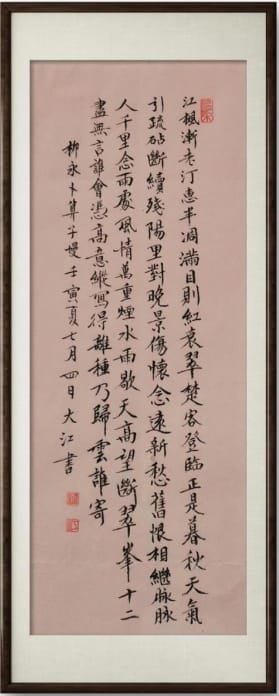 江楓漸老汀蕙半凋滿目敗紅衰翠楚客登臨正是暮秋天氣
引疏砧斷續殘陽里對晚景傷懷念遠新愁舊恨相繼脉脉
人千里念兩處風情萬重煙水雨歇天高望斷翠峯十二
盡無言誰會憑高意縱寫得離種乃歸雲誰寄
柳永卜算子慢壬寅夏七月四日大江書